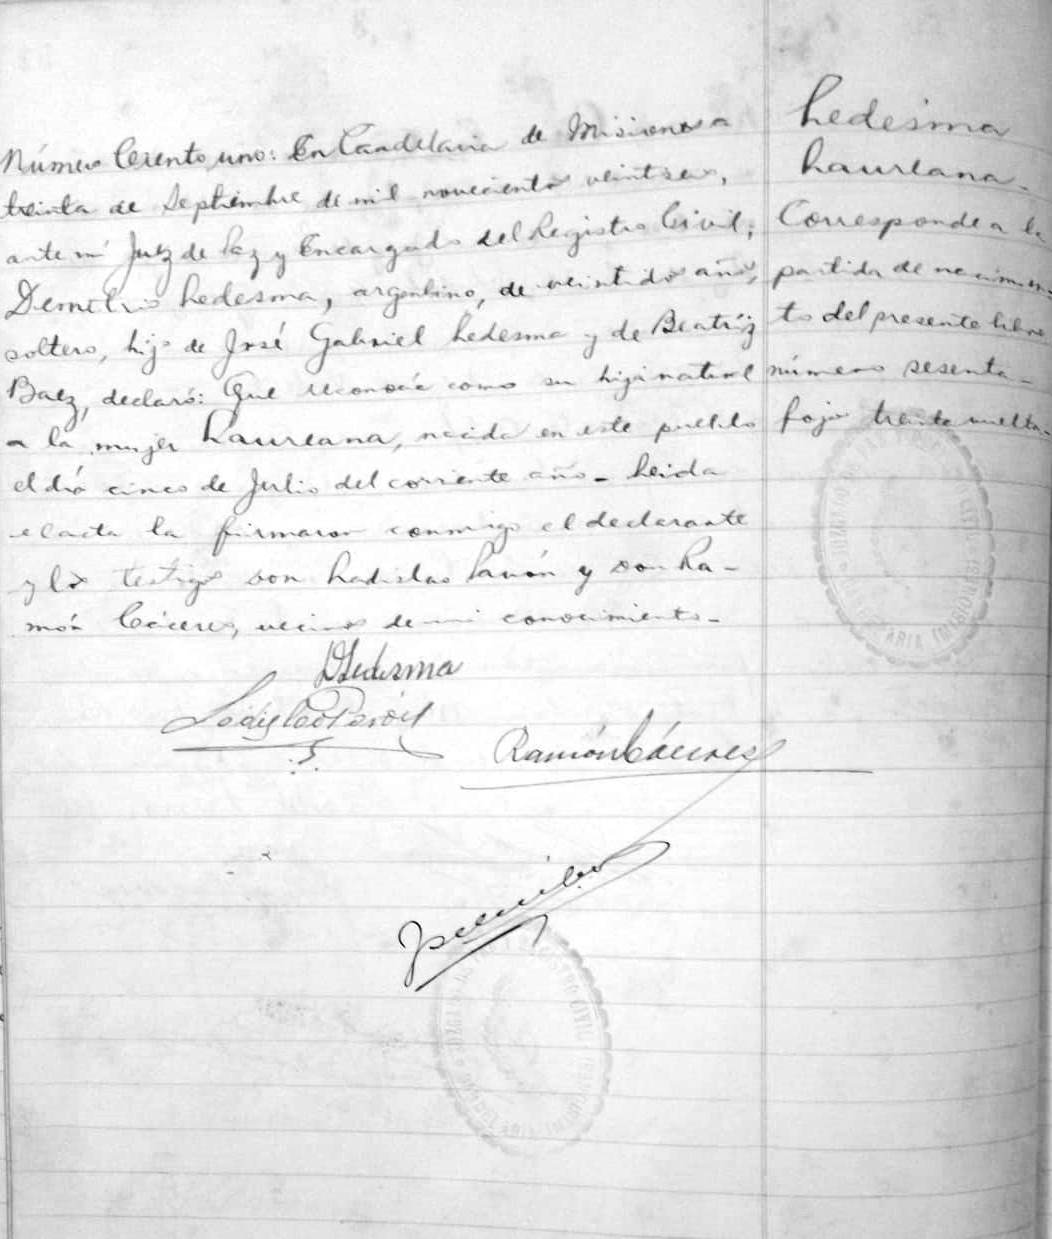 Número Ciento uno: En Candelaria de Misiones a
treinta de Septiembre de mil novecientos veintseis,
ante mi Juez de Paz y Encargado del Registro Civil;
Demetrio Ledesma, argentino, de veintidos años,
soltero, hijo de José Gabriel Ledesma y de Beatríz
Baez, declaró: Que reconocía como su hija natural
a la mujer Laureana, nacida en este pueblo
el día cinco de Julio del corriente año - Leida
el acta la firmaron conmigo el declarante
y los testigos don Ladislao Pavón y don Ra-
món Cáceres, vecinos de mi conocimiento -
Ledesma
Laureana -
Corresponde a la
partida de nacimien-
to del presente libro
número sesenta -
fojo treinta vuelta -
DLedesma
Ramón Cáceres